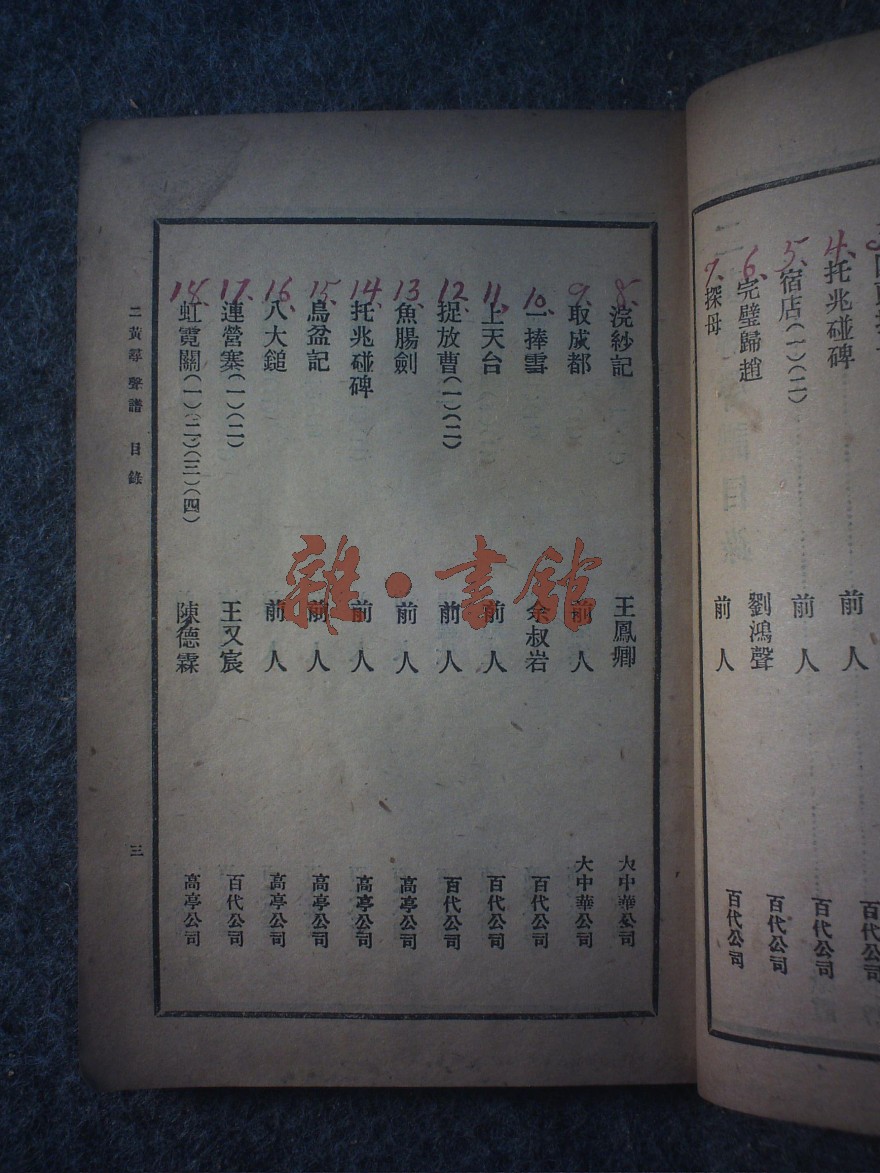 4、托兆碰碑 前人 百代公司
5、宿店(一)(二) 前人 百代公司
6、完璧歸趙 劉鴻聲 百代公司
7、探母 前人 百代公司
8、浣紗記 王鳳卿 大中華公司
9、取成都 前人 大中華公司
10、一捧雪 余叔岩 百代公司
11、上天台 前人 百代公司
12、捉放曹(一)(二) 前人 百代公司
13、魚腸劍 前人 高亭公司
14、托兆碰碑 前人 高亭公司
15、烏盆記 前人 高亭公司
16、八大鎚 前人 高亭公司
17、連營寨(一)(二) 王又宸 百代公司
18、虹霓關(一)(二)(三)(四) 陳德霖 高亭公司
二黃尋聲譜 目錄 三
雜·書館